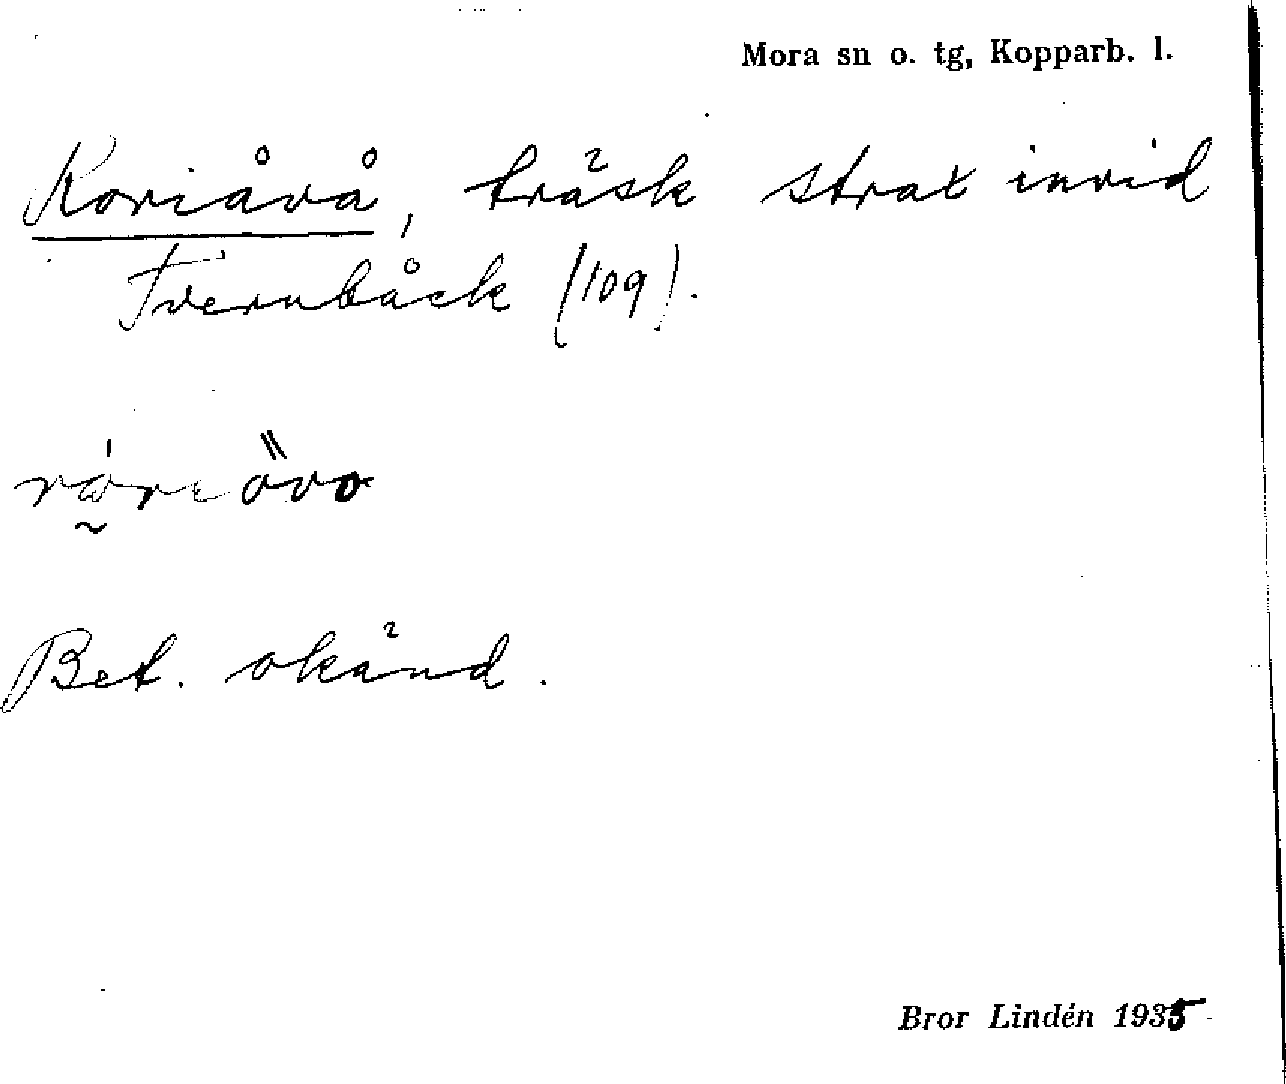 Mora sn o. tg, Kopparb. l.
Roriåvå, träsk strax invid
Tvernbåck (109).
Bet. okänd.
Bror Lindén 1935